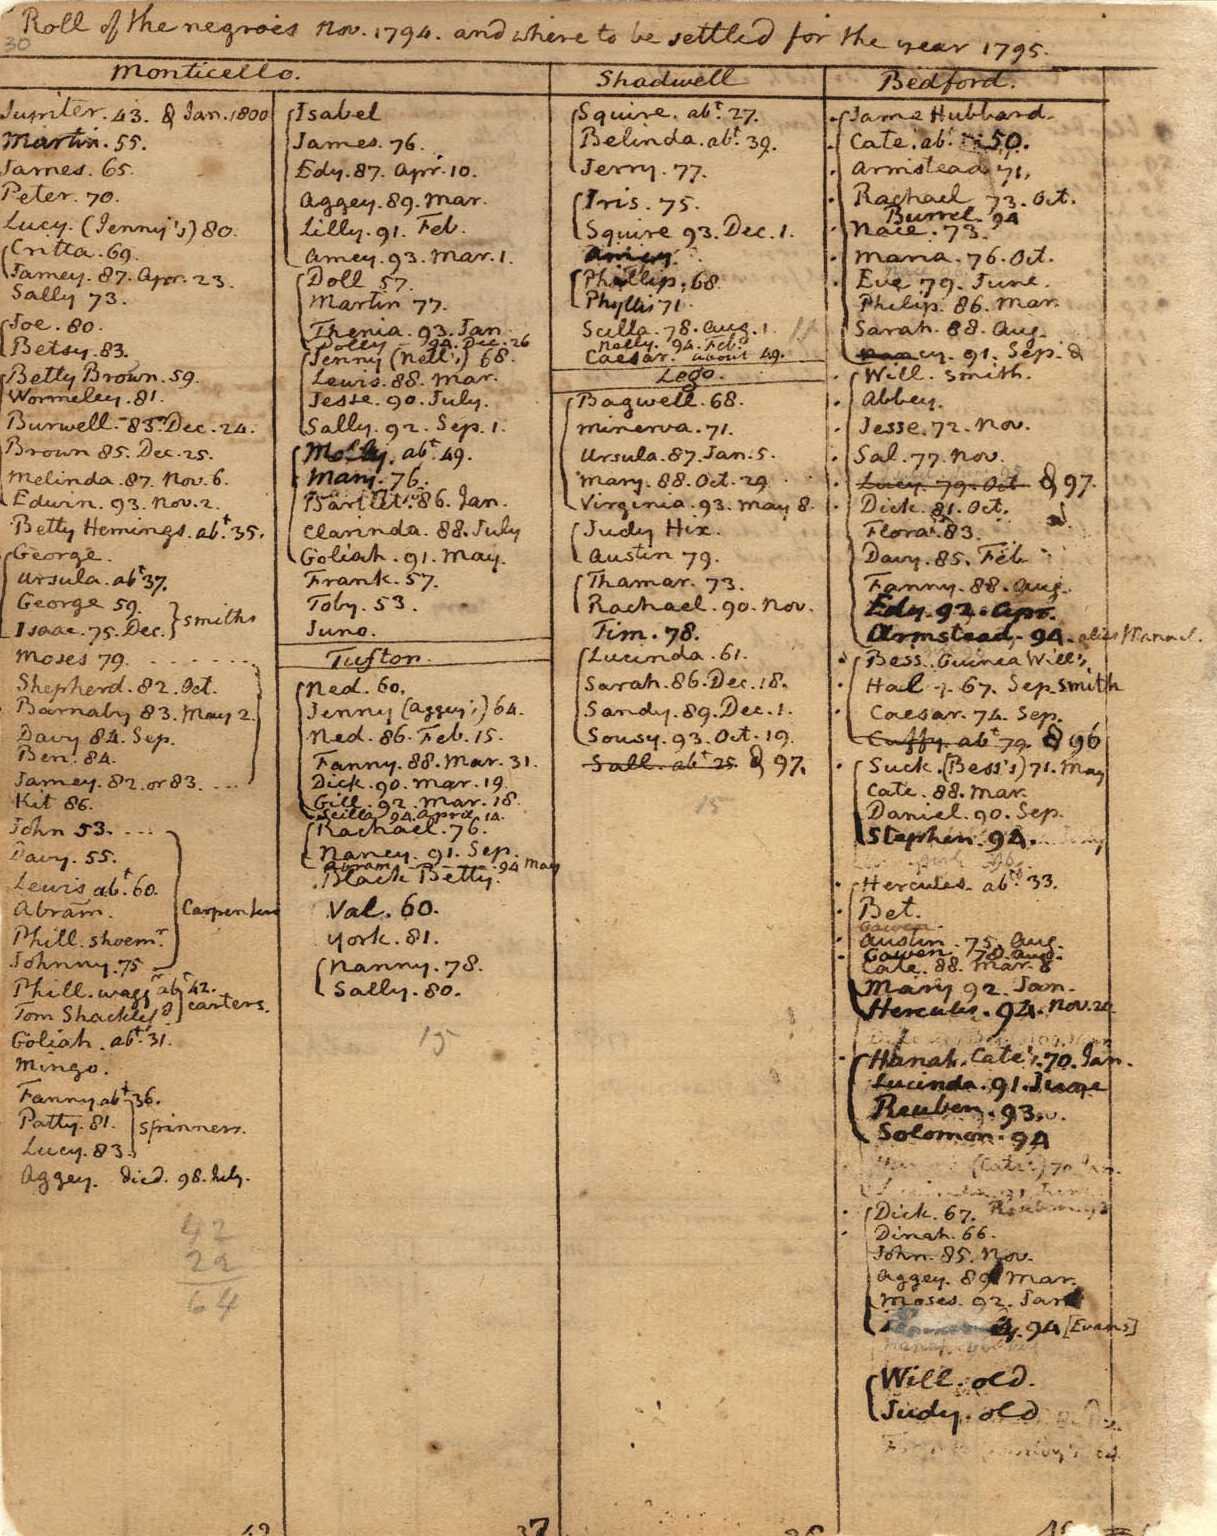 Roll of the negroes Nov. 1794. and where to be settled for the year 1795.
30
Monticello.
Jupiter. 43. d Jan. 1800
Martin. 55.
James. 65.
Peter. 70.
Lucy. (Jenny's) 80.
Critta. 69.
Jamey. 87. Apr. 23.
Sally 73.
Joe. 80.
Betsy. 83.
Betty Brown. 59.
Wormeley. 81.
Burwell. 83. Dec. 24.
Brown 85. Dec. 25.
Melinda. 87. Nov. 6.
Edwin. 93. Nov. 2.
Betty Hemings. abt. 35.
George.
Ursula. abt 37.
George 59.
Isaac. 75. Dec.
smiths
Moses 79.
Shepherd. 82. Oct.
Barnaby 83. May 2.
Davy 84. Sep.
Ben. 84.
Jamey. 82. or 83.
Kit 86.
John 53.
Davy. 55.
Lewis abt. 60.
Abram.
Phill. shoemr.
Johnny. 75
Carpenters
Phill. waggr abt 42.
Tom Shackleford
carters.
Goliah. abt. 31.
Mingo.
Fanny abt 36.
Patty. 81.
Lucy. 83.
spinners.
Aggey. died. 98. July.
42
22
64
Isabel
James. 76.
Edy. 87. Apr. 10.
Aggey. 89. Mar.
Lilly. 91. Feb.
Amey. 93. Mar. 1.
Doll 57.
Martin 77.
Thenia. 93. Jan
Dolly 94. Dec. 26
Jenny (Ned's) 68.
Lewis. 88. Mar.
Jesse. 90. July.
Sally. 92. Sep. 1.
Molly. abt. 49.
Mary. 76.
Bartlet. 86. Jan.
Clarinda. 88. July
Goliah. 91. May.
Frank. 57.
Toby. 53.
Juno.
Tufton.
Ned. 60.
Jenny (Aggey's) 64.
Ned. 86. Feb. 15.
Fanny. 88. Mar. 31.
Dick. 90. Mar. 19.
Gill. 92. Mar. 18.
Scilla 94. April 14.
Rachael. 76.
Nancy. 91. Sep.
Abram. 94 May
Black Betty.
Val. 60.
York. 81.
Nanny. 78.
Sally. 80.
15
Shadwell
Squire. abt. 27.
Belinda. abt. 39.
Jerry. 77.
Iris. 75.
Squire 93. Dec. 1.
Amey.
Phillip. 68.
Phyllis 71.
Scilla. 78. Aug. 1.
11
Nelly. 94. Feb.
Caesar. about 49.
Lego.
Bagwell. 68.
Minerva. 71.
Ursula. 87. Jan. 5.
Mary. 88. Oct. 29
Virginia. 93. May 8.
Judy Hix.
Austin 79.
Thamar. 73.
Rachael. 90. Nov.
Tim. 78.
Lucinda. 61.
Sarah. 86. Dec. 18.
Sandy. 89. Dec. 1.
Sousy. 93. Oct. 19.
Sall. abt 25. d 97.
15
Bedford.
Jame Hubbard.
Cate. abt. 50.
Armistead 71.
Rachael 73. Oct.
Burrel. 94
Nace. 73.
Maria. 76. Oct.
Eve 79. June.
Philip. 86. Mar.
Sarah. 88. Aug.
Nancy. 91. Sep. d
Will. Smith.
Abbey.
Jesse. 72. Nov.
Sal. 77. Nov.
Lucy. 79. Oct d 97.
Dick. 81. Oct.
Flora. 83.
Davy. 85. Feb
Fanny. 88. Aug.
Edy. 92. Apr.
Armstead. 94. alias Mannel.
Bess. Guinea Will's.
Hal. 67. Sep. smith
Caesar. 74. Sep.
Cuffy. abt 79. d 96
Suck. (Bess's) 71. May
Cate. 88. Mar.
Daniel. 90. Sep.
Stephen. 94.
Hercules. abt. 33.
Bet.
Gawen.
Austin. 75. Aug.
Gawen 78. Aug.
Cate. 88. Mar. 8
Mary 92. Jan.
Hercules. 94. Nov. 20
Hanah. Cate's. 70. Jan.
Lucinda. 91.
Reuben. 93.
Solomon. 94
(Cate's) 70 Jan.
Dick. 67.
Reuben. 93
Dinah. 66.
John. 85. Nov.
Aggey. 89 Mar.
Moses. 92. Jan
94 [Evans]
Will. old.
Judy. old
37